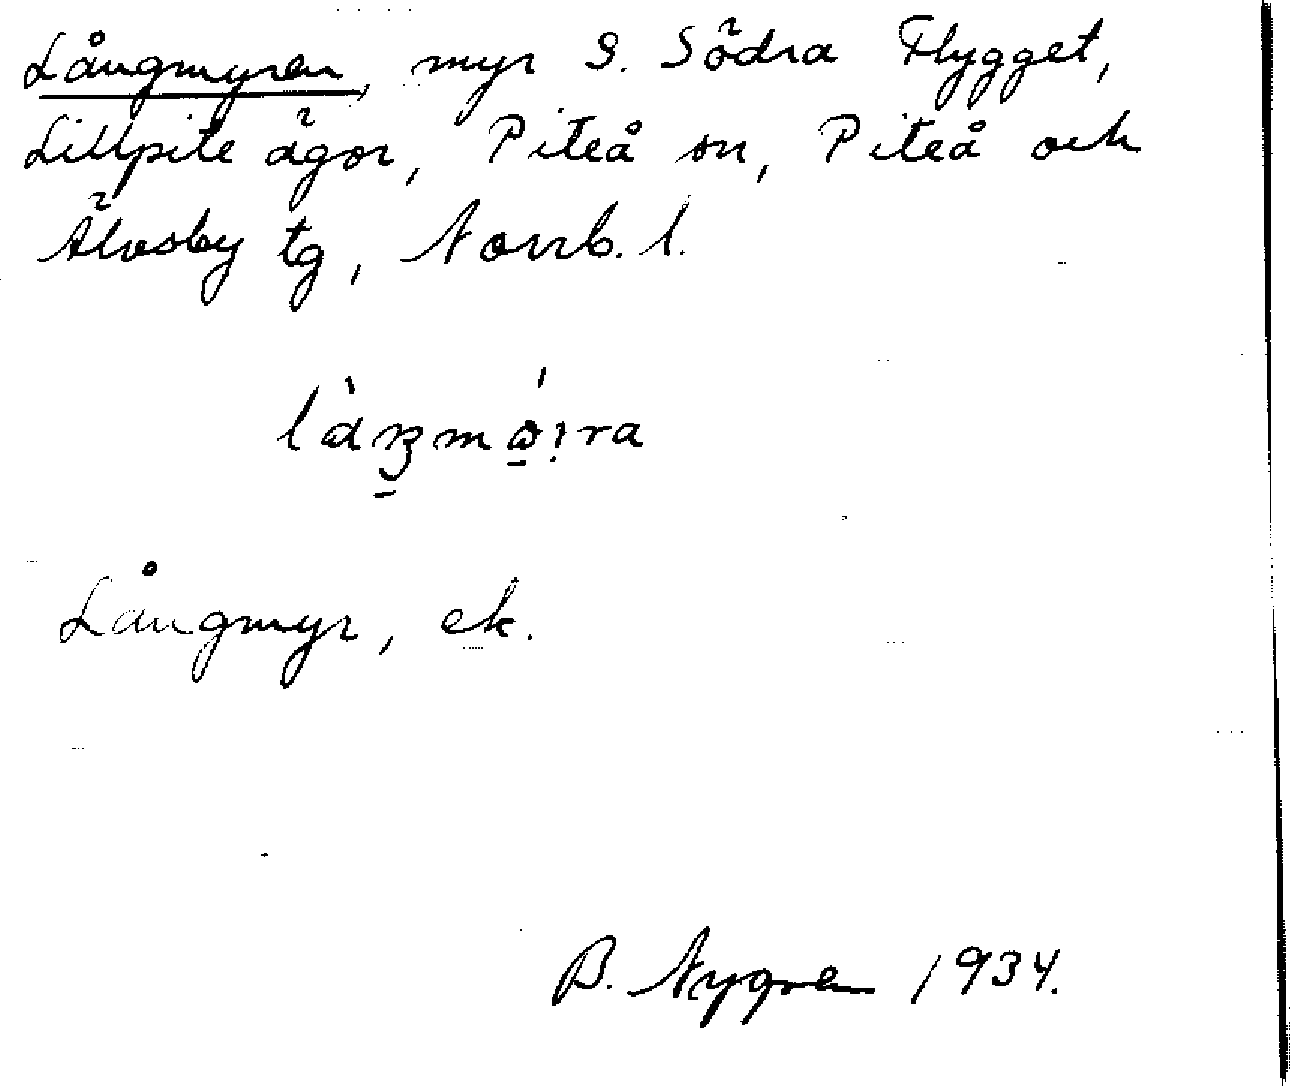 Långmyren, myr S. Södra Flygget,
Lillpite ägor, Piteå sn, Piteå och
Älvsby tg, Norrb. l.
Långmyr, ek.
B. Nygren 1934.